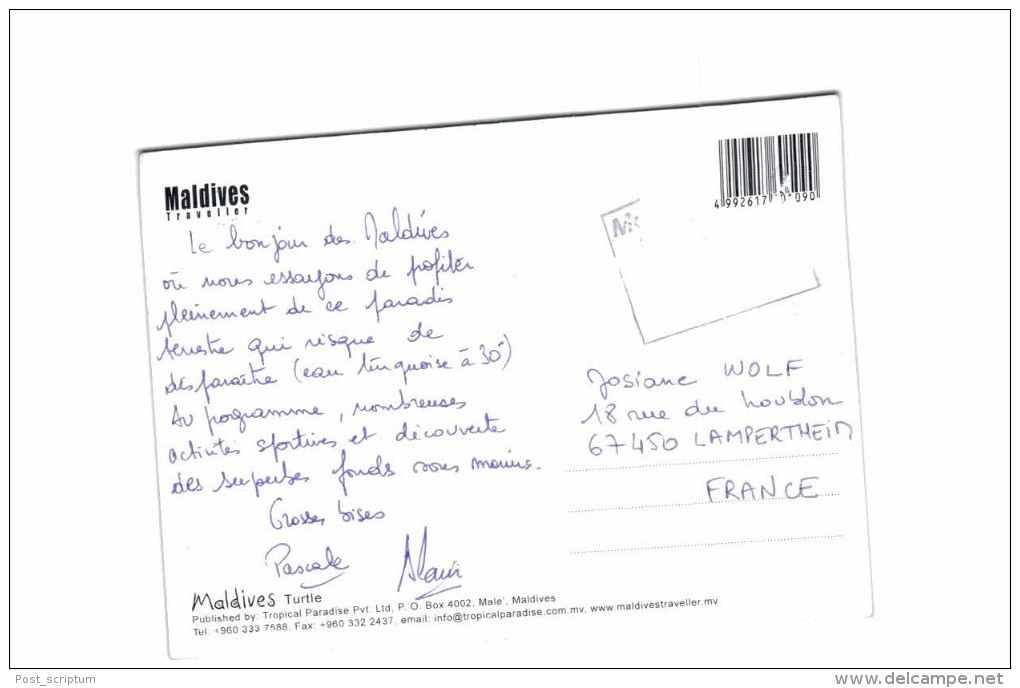 Maldives
Traveller
4 992617 01090
Le bonjour des Maldives
où nous essayons de profiter
pleinement de ce paradis
terrestre qui risque de
disparaître (eau turquoise à 30°)
Au programme, nombreuses
activités sportives et découverte
des superbes fonds sous marins.
Grosses bises
Pascale Alain
Josiane WOLF
18 rue du houblon
67450 LAMPERTHEIM
FRANCE
Maldives Turtle
Published by: Tropical Paradise Pvt. Ltd, P. O. Box 4002, Male', Maldives
Tel: +960 333 7588, Fax: +960 332 2437, email: info@tropicalparadise.com.mv, www.maldivestraveller.mv
Post_scriptum
delcampe.net